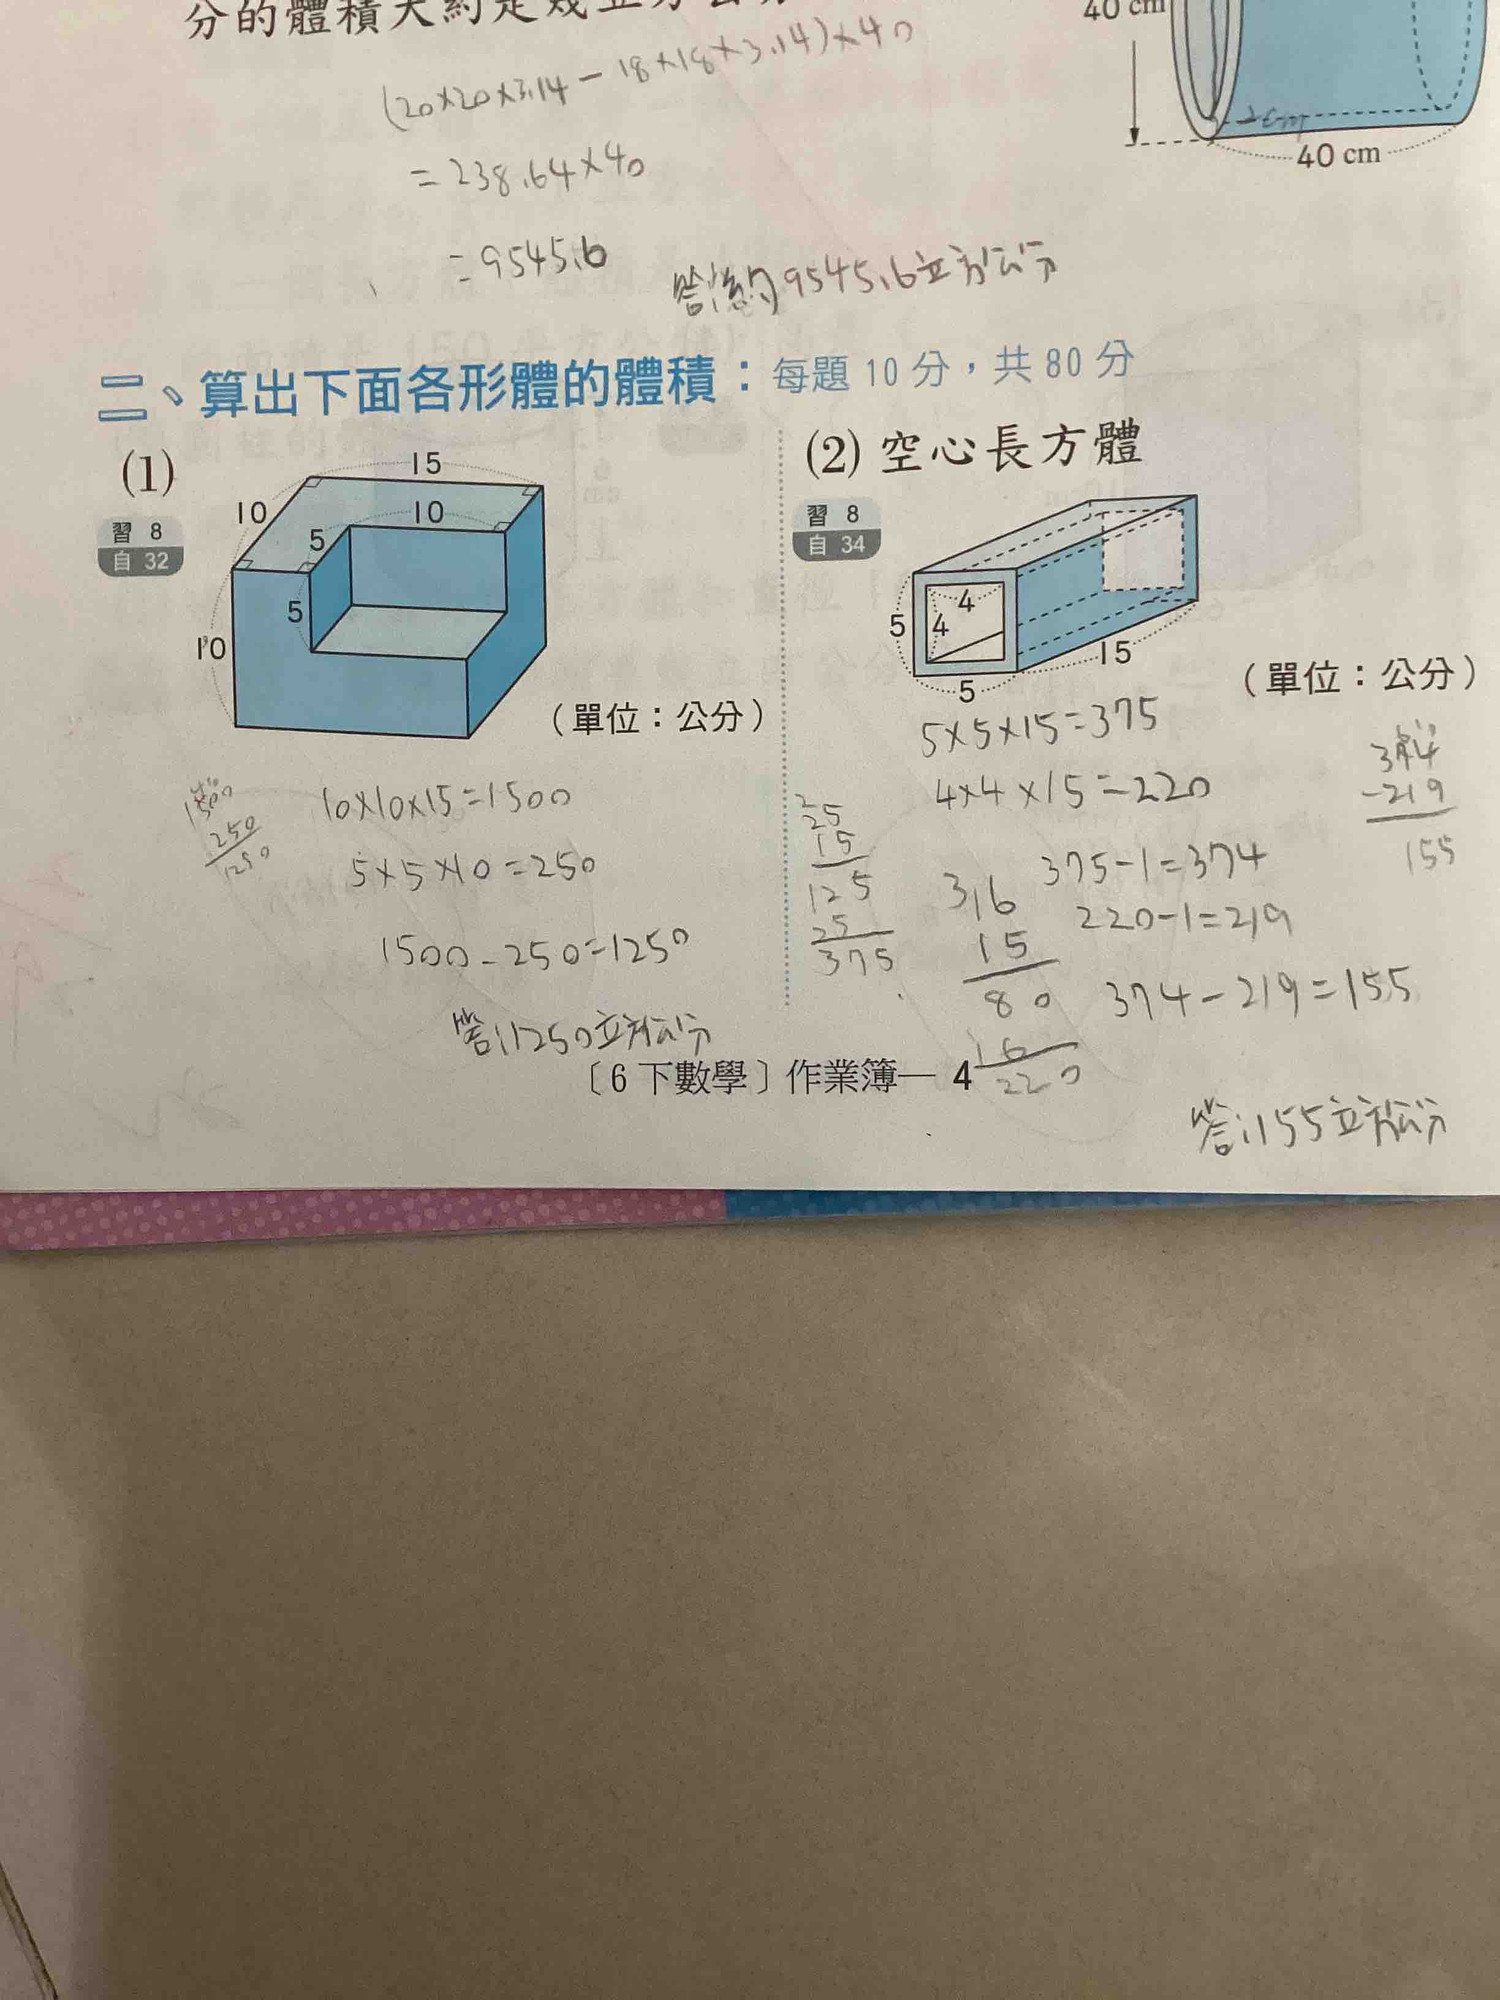 分的體積大約是幾立方公分
40 cm
(20×20×3.14 - 18×18×3.14)×40
2cm
40 cm
=238.64×40
=9545.6
答:約9545.6立方公分
二、算出下面各形體的體積：每題 10 分，共 80 分
(1)
習 8
自 32
15
10
10
5
5
10
(單位：公分)
10×10×15=1500
5×5×10=250
1500
250
1250
1500-250=1250
答:1250立方公分
(2) 空心長方體
習 8
自 34
4
4
5
5
15
(單位：公分)
5×5×15=375
4×4×15=220
25
15
125
25
375
16
15
80
16
220
375-1=374
220-1=219
374-219=155
-219
155
答:155立方公分
〔6 下數學〕作業簿— 4